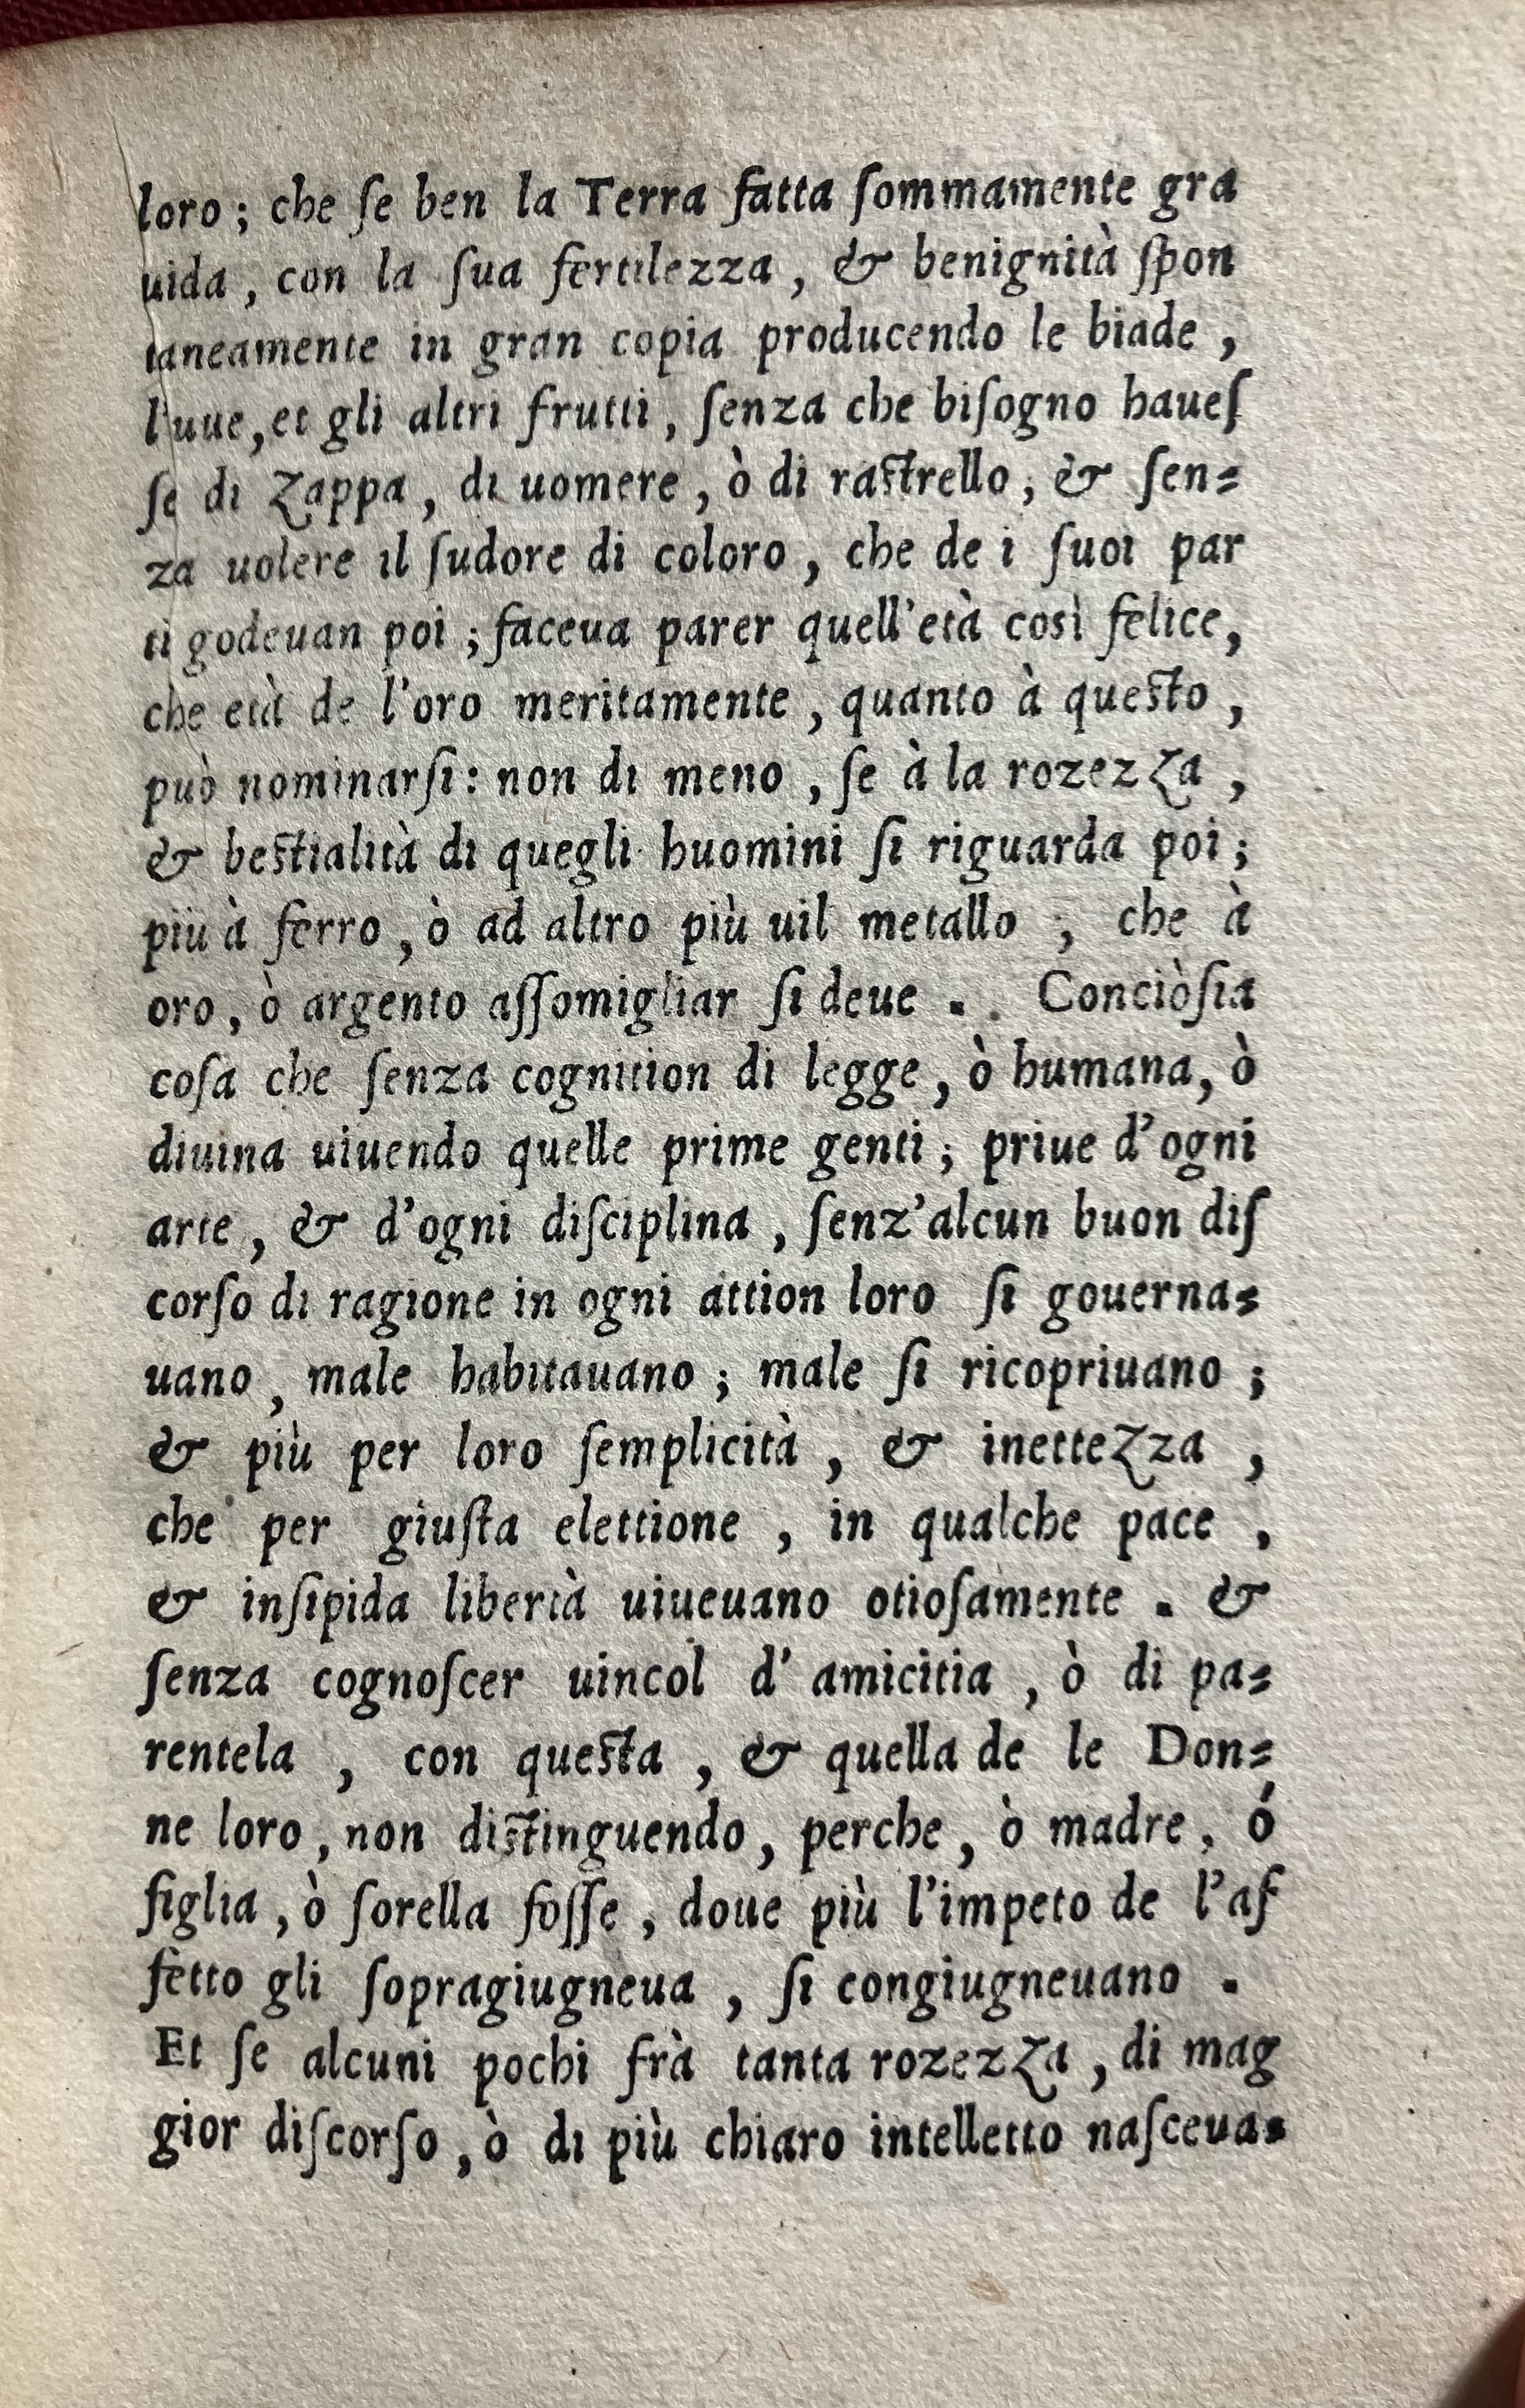 loro ; che ſe ben la Terra fatta ſommamente gra
uida , con la ſua fertilezza , & benignità ſpon
taneamente in gran copia producendo le biade ,
l'uue, et gli altri frutti , ſenza che biſogno haueſ
ſe di Zappa , di uomere , ò di raſtrello , & ſen=
za uolere il ſudore di coloro , che de i ſuoi par
ti godeuan poi ; faceua parer quell'età così felice,
che età de l'oro meritamente , quanto à queſto ,
può nominarſi : non di meno , ſe à la rozezza ,
& beſtialità di quegli huomini ſi riguarda poi ;
più à ferro , ò ad altro più uil metallo ; che à
oro , ò argento aſſomigliar ſi deue . Conciòſia
coſa che ſenza cognition di legge , ò humana, ò
diuina uiuendo quelle prime genti ; priue d'ogni
arte , & d'ogni diſciplina , ſenz'alcun buon diſ
corſo di ragione in ogni attion loro ſi gouerna=
uano , male habitauano ; male ſi ricopriuano ;
& più per loro ſemplicità , & inettezza ,
che per giuſta elettione , in qualche pace ,
& inſipida libertà uiueuano otioſamente . &
ſenza cognoſcer uincol d' amicitia , ò di pa=
rentela , con queſta , & quella de le Don=
ne loro , non diſtinguendo, perche , ò madre , ó
figlia , ò ſorella foſſe , doue più l'impeto de l'af
fetto gli ſopragiugneua , ſi congiugneuano .
Et ſe alcuni pochi frà tanta rozezza , di mag
gior diſcorſo , ò di più chiaro intelletto naſceua=